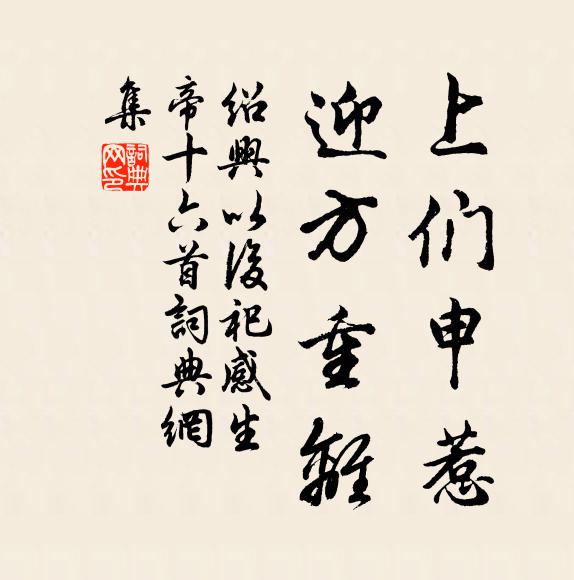 上们申惹
迎方重離
紹興以後祀感生
帝十六首詞典網
集
詞典
网印